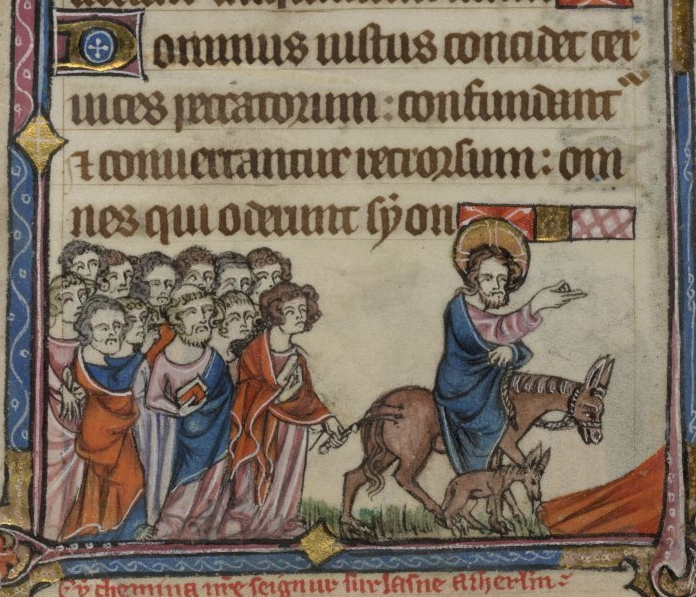 Dominus iustus concidet cer
uices peccatorum : confundant
⁊ conuertantur retrorsum : om
nes qui oderunt syon
Cy chemina nre seignur sur lasne a iherlm